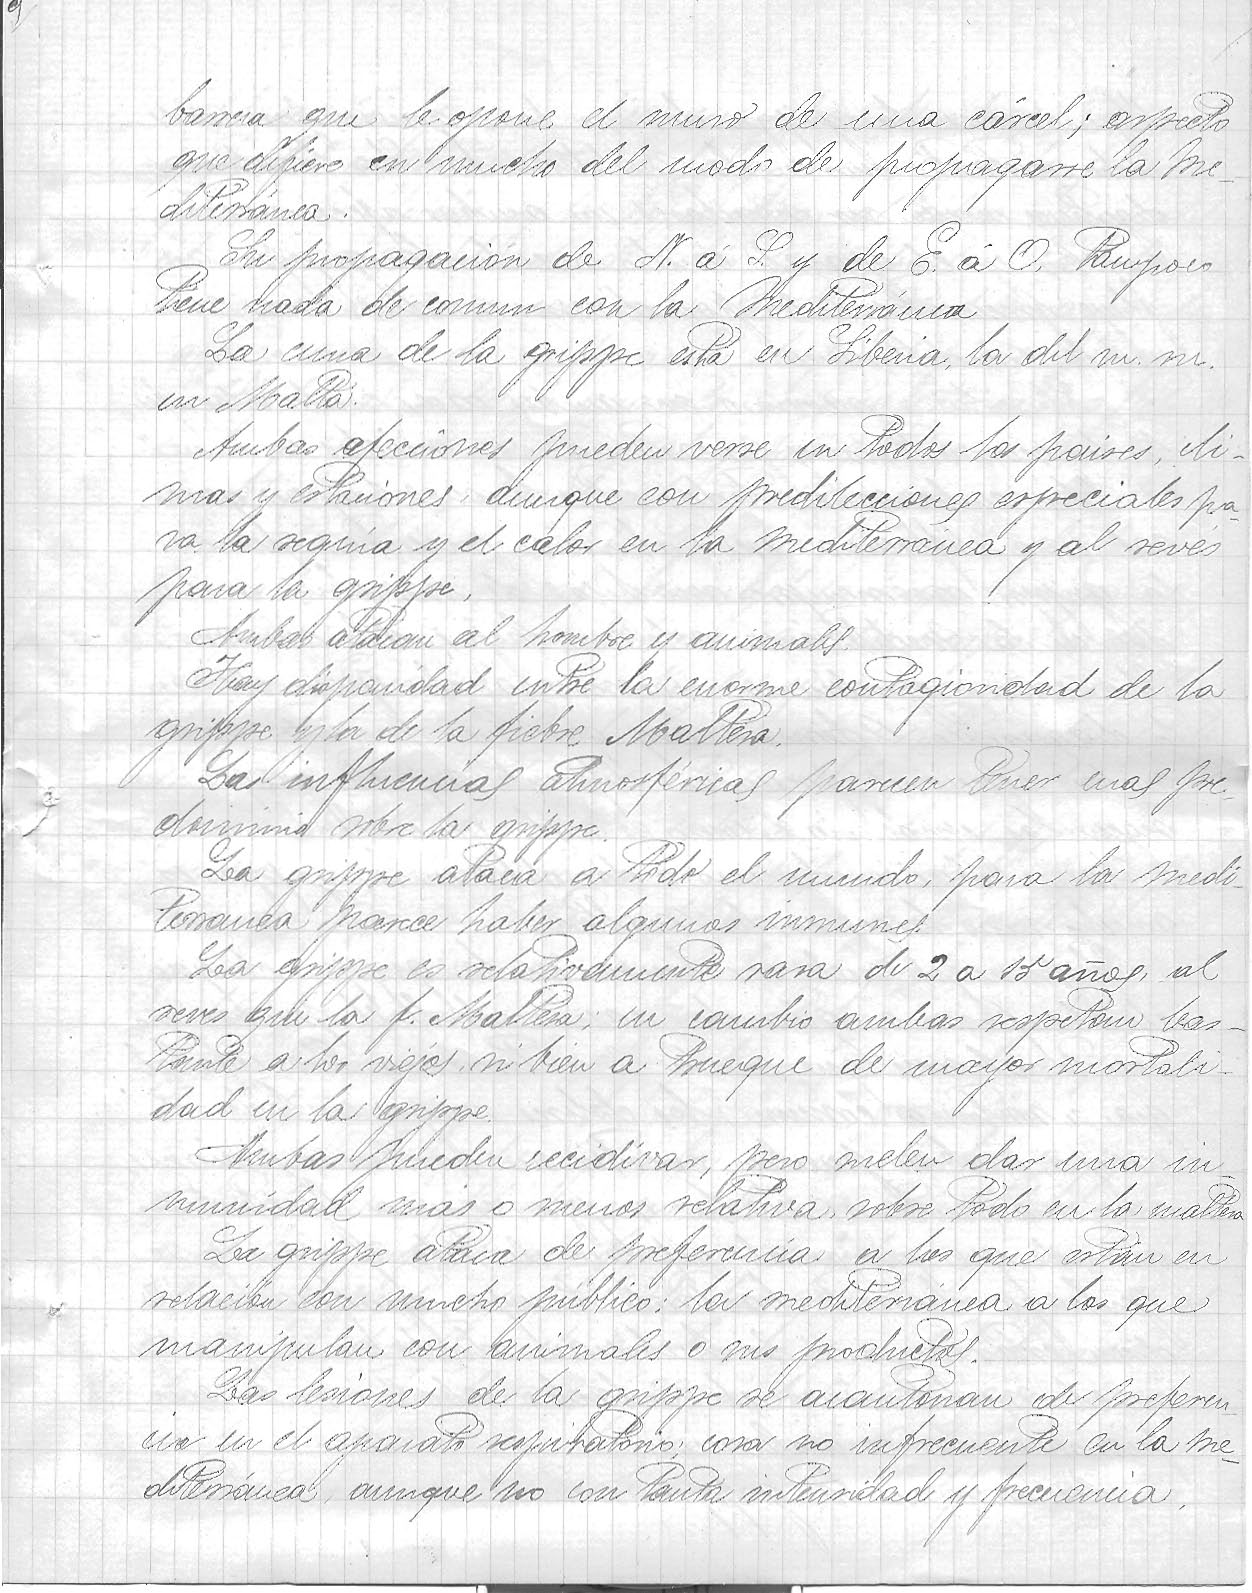 barrera que le opone el muro de una cárcel; aspecto
que difiere en mucho del modo de propagarse la Me-
diterránea.
Su propagación de N. á S. y de E. á O. Tampoco
tiene nada de comun con la Mediterránea
La cuna de la grippe está en Siberia, la del m. m.
en Malta.
Ambas afecciones pueden verse en todos los paises, cli-
mas y estaciones, aunque con predilecciones especiales pa-
ra la sequía y el calor en la mediterránea y al revés
para la grippe.
Ambas atacan al hombre y animales.
Hay disparidad entre la enorme contagiosidad de la
grippe y la de la fiebre Maltesa.
Las influencias atmosféricas parecen tener mas pre-
dominio sobre la grippe.
La grippe ataca a todo el mundo, para la Medi-
terranea parece haber algunos inmunes.
La grippe es relativamente rara de 2 a 15 años, al
reves que la f. Maltesa; en cambio ambas respetan bas-
tante a los viejos, si bien a trueque de mayor mortali-
dad en la grippe.
Ambas pueden recidivar, pero suelen dar una in-
munidad más o menos relativa, sobre todo en la maltesa
La grippe ataca de preferencia a los que están en
relación con mucho público; la mediterránea a los que
manipulan con animales o sus productos.
Las lesiones de la grippe se acantonan de preferen-
cia en el aparato respiratorio; cosa no infrecuente en la Me-
diterránea, aunque no con tanta intensidad y frecuencia.